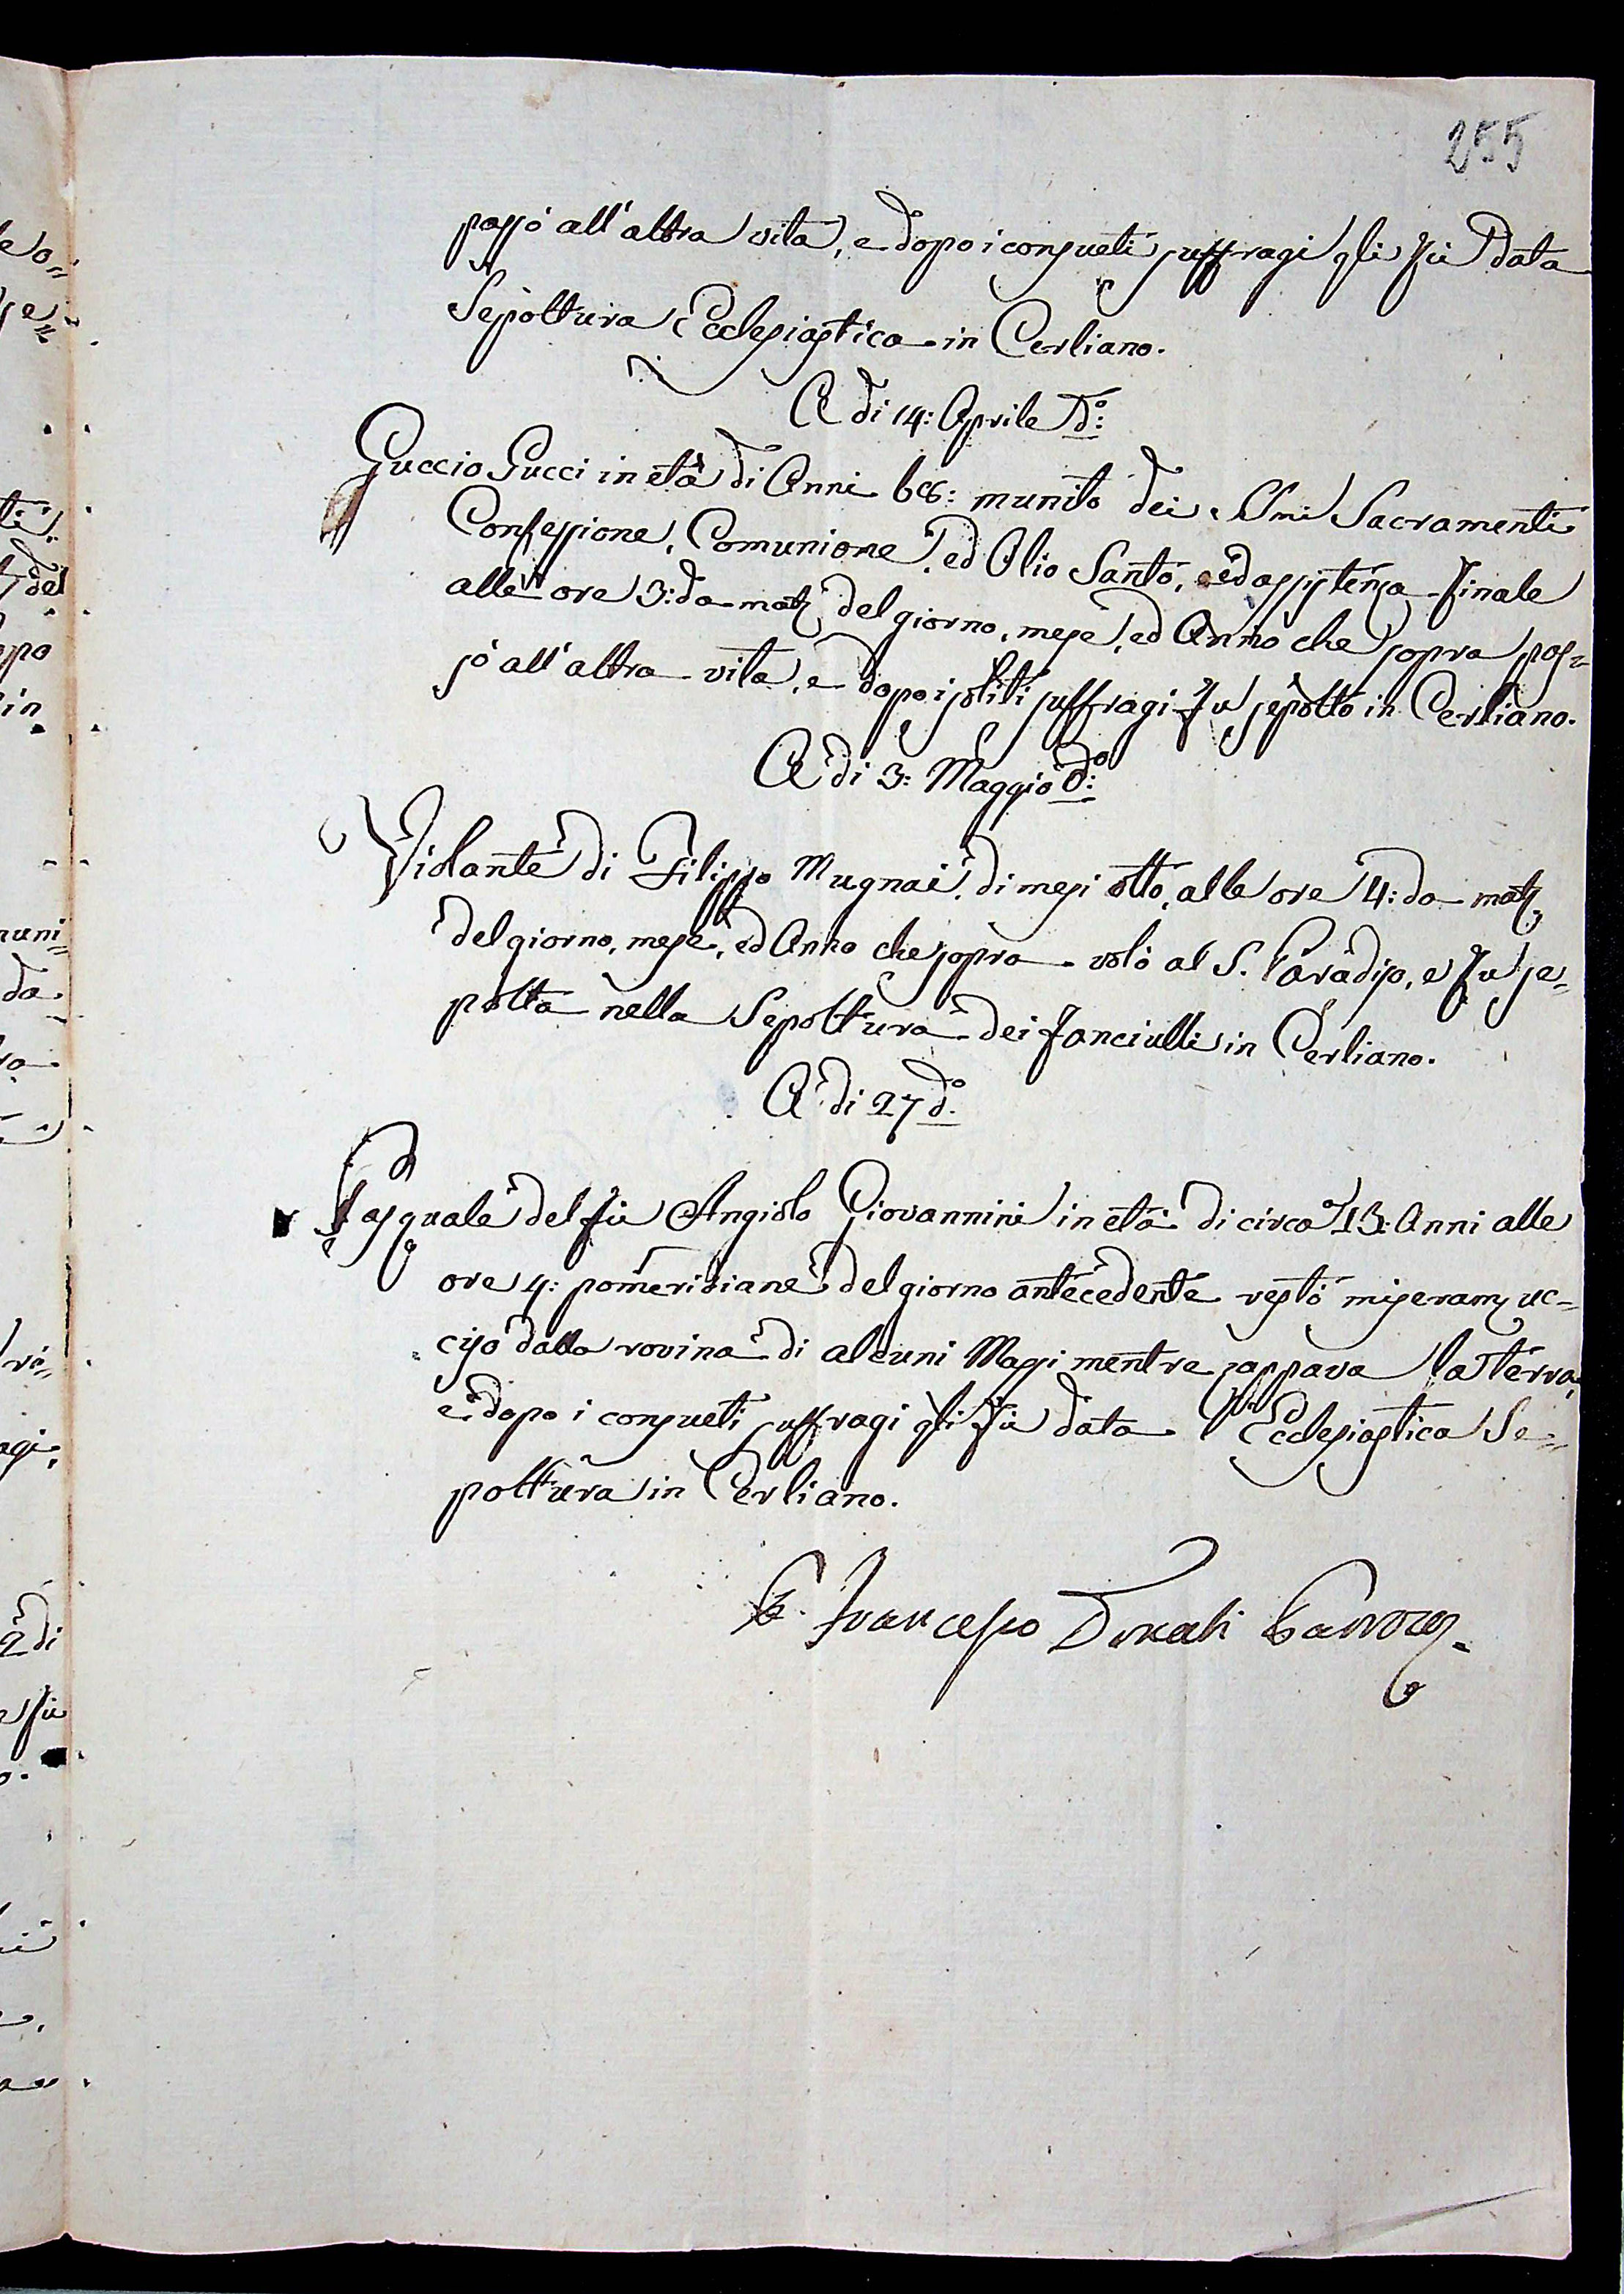 255
passò all'altra vita, e dopo i consueti suffragi gli fù data
Sepoltura Ecclesiastica in Cerliano.
A di 14: Aprile do:
Guccio Gucci in età di Anni 68: munito dei SSmi Sacramenti
Confessione, Comunione, ed Olio Santo, ed assistenza finale
alle ore 3: da matt del giorno, mese, ed Anno che sopra pas=
sò all'altra vita, e dopo i soliti suffragi fu sepolto in Cerliano.
A di 3: Maggio do:
Violante di Filippo Mugnai, di mesi otto, alle ore 4: da matt
del giorno, mese, ed Anno che sopra volò al S. Paradiso, e fu se=
polta nella Sepoltura dei fanciulli in Cerliano.
A di 27 do.
Pasquale del fù Angiolo Giovannini in età di circa 13: Anni alle
ore 4: pomeridiane del giorno antecedente restò miseram uc=
ciso dalla rovina di alcuni Massi mentre zappava la terra,
e dopo i consueti suffragi gli fù data l'Ecclesiastica Se=
poltura in Cerliano.
P. Francesco Donati